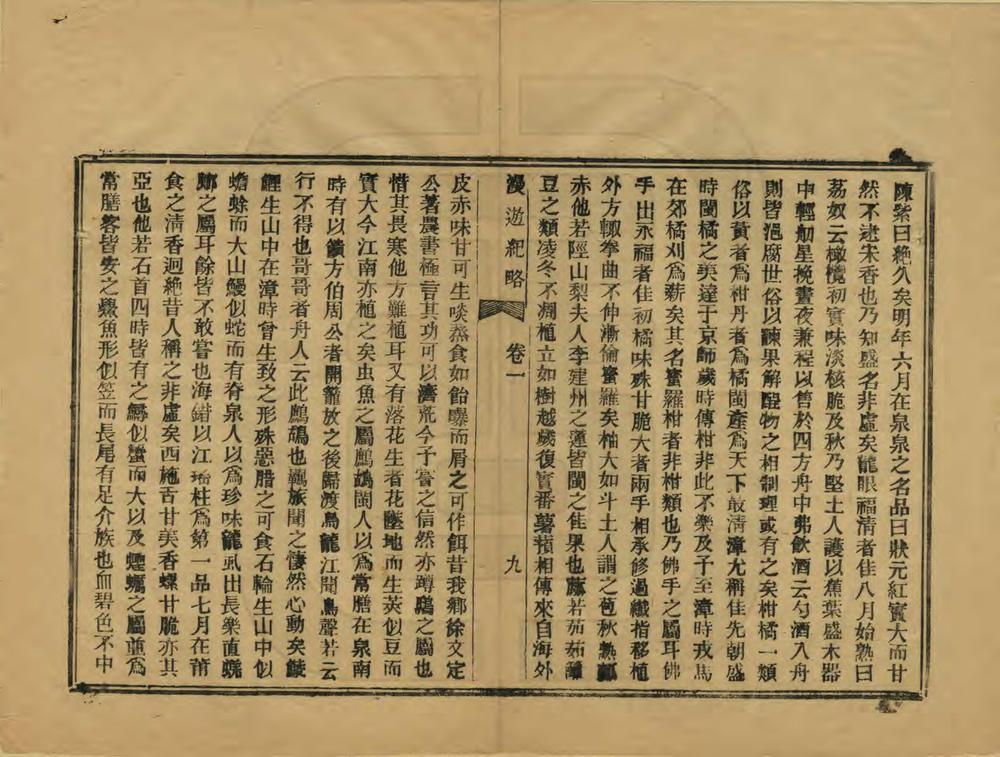 陳紫曰絶久矣明年六月在泉泉之名品曰狀元紅實大而甘
然不逮宋香也乃知盛名非虛矣龍眼福清者佳八月始熟曰
荔奴云橄欖初實味淡核脆及秋乃堅土人護以蕉葉盛木器
中輕舠星挽晝夜兼程以售於四方舟中弗飲酒云勺酒入舟
則皆浥腐世俗以諫果解酲物之相制理或有之矣柑橘一類
俗以黃者爲柑丹者爲橘閩產爲天下最淸漳尤稱佳先朝盛
時閩橘之美達于京師歲時傳柑非此不樂及予至漳時戎馬
在郊橘刈爲薪矣其名蜜羅柑者非柑類也乃佛手之屬耳佛
手出永福者佳初橘味殊甘脆大者兩手相承修過纖指移植
外方輒拳曲不伸漸倫蜜羅矣柚大如斗土人謂之苞秋熟瓤
赤他若陘山梨夫人李建州之蓮皆閩之佳果也蔬若茄茹蘺
豆之類凌冬不凋植立如樹越歲復實番薯蕷相傳來自海外
漫遊紀略 卷一 九
皮赤味甘可生啖蒸食如飴曝而屑之可作餌昔我鄉徐文定
公著農書極言其功可以濟荒今予嘗之信然亦蹲鴟之屬也
惜其畏寒他方難植耳又有落花生者花墜地而生莢似豆而
實大今江南亦植之矣虫魚之屬鷓鴣閩人以爲常膳在泉南
時有以饋方伯周公者開籠放之後歸渡烏龍江聞鳥聲若云
行不得也哥哥者舟人云此鷓鴣也羈旅聞之悽然心動矣鯪
鯉生山中在漳時曾生致之形殊惡腊之可食石輪生山中似
蟾蜍而大山鰻似蛇而有脊泉人以爲珍味龍虱出長樂直蜣
螂之屬耳餘皆不敢嘗也海錯以江瑤柱爲第一品七月在莆
食之清香迥絶昔人稱之非虛矣西施舌甘美香螺甘脆亦其
亞也他若石首四時皆有之蟳似蟹而大以及蟶蠣之屬並爲
常膳客皆安之鱟魚形似笠而長尾有足介族也血碧色不中